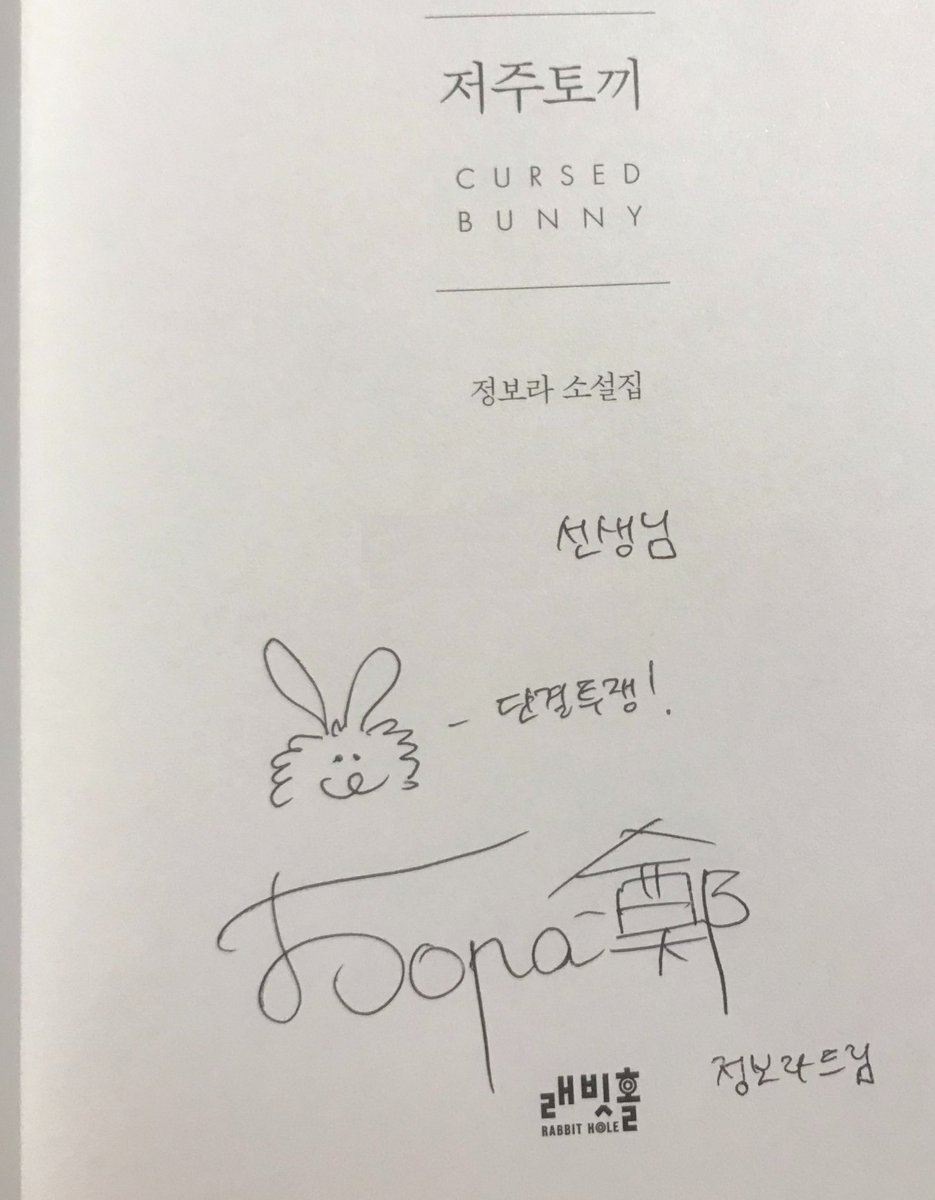 저주토끼
CURSED
BUNNY
정보라 소설집
선생님
- 단결투쟁!
Бора 鄭
정보라 드림
래빗홀
RABBIT HOLE